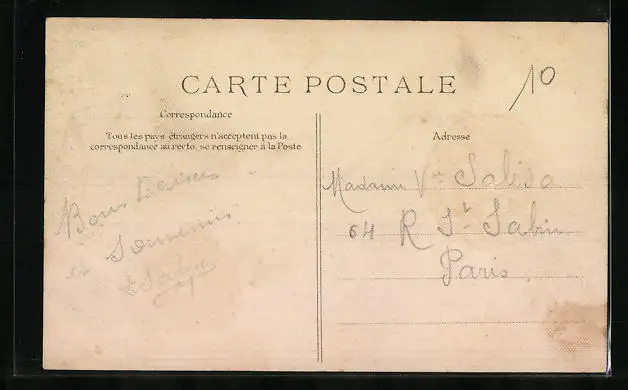 CARTE POSTALE
10
Correspondance
Tous les pays étrangers n'acceptent pas la
correspondance au recto, se renseigner à la Poste
Adresse
Bons Baisers
et Souvenirs
Madame Vve
64 R St Sabin
Paris